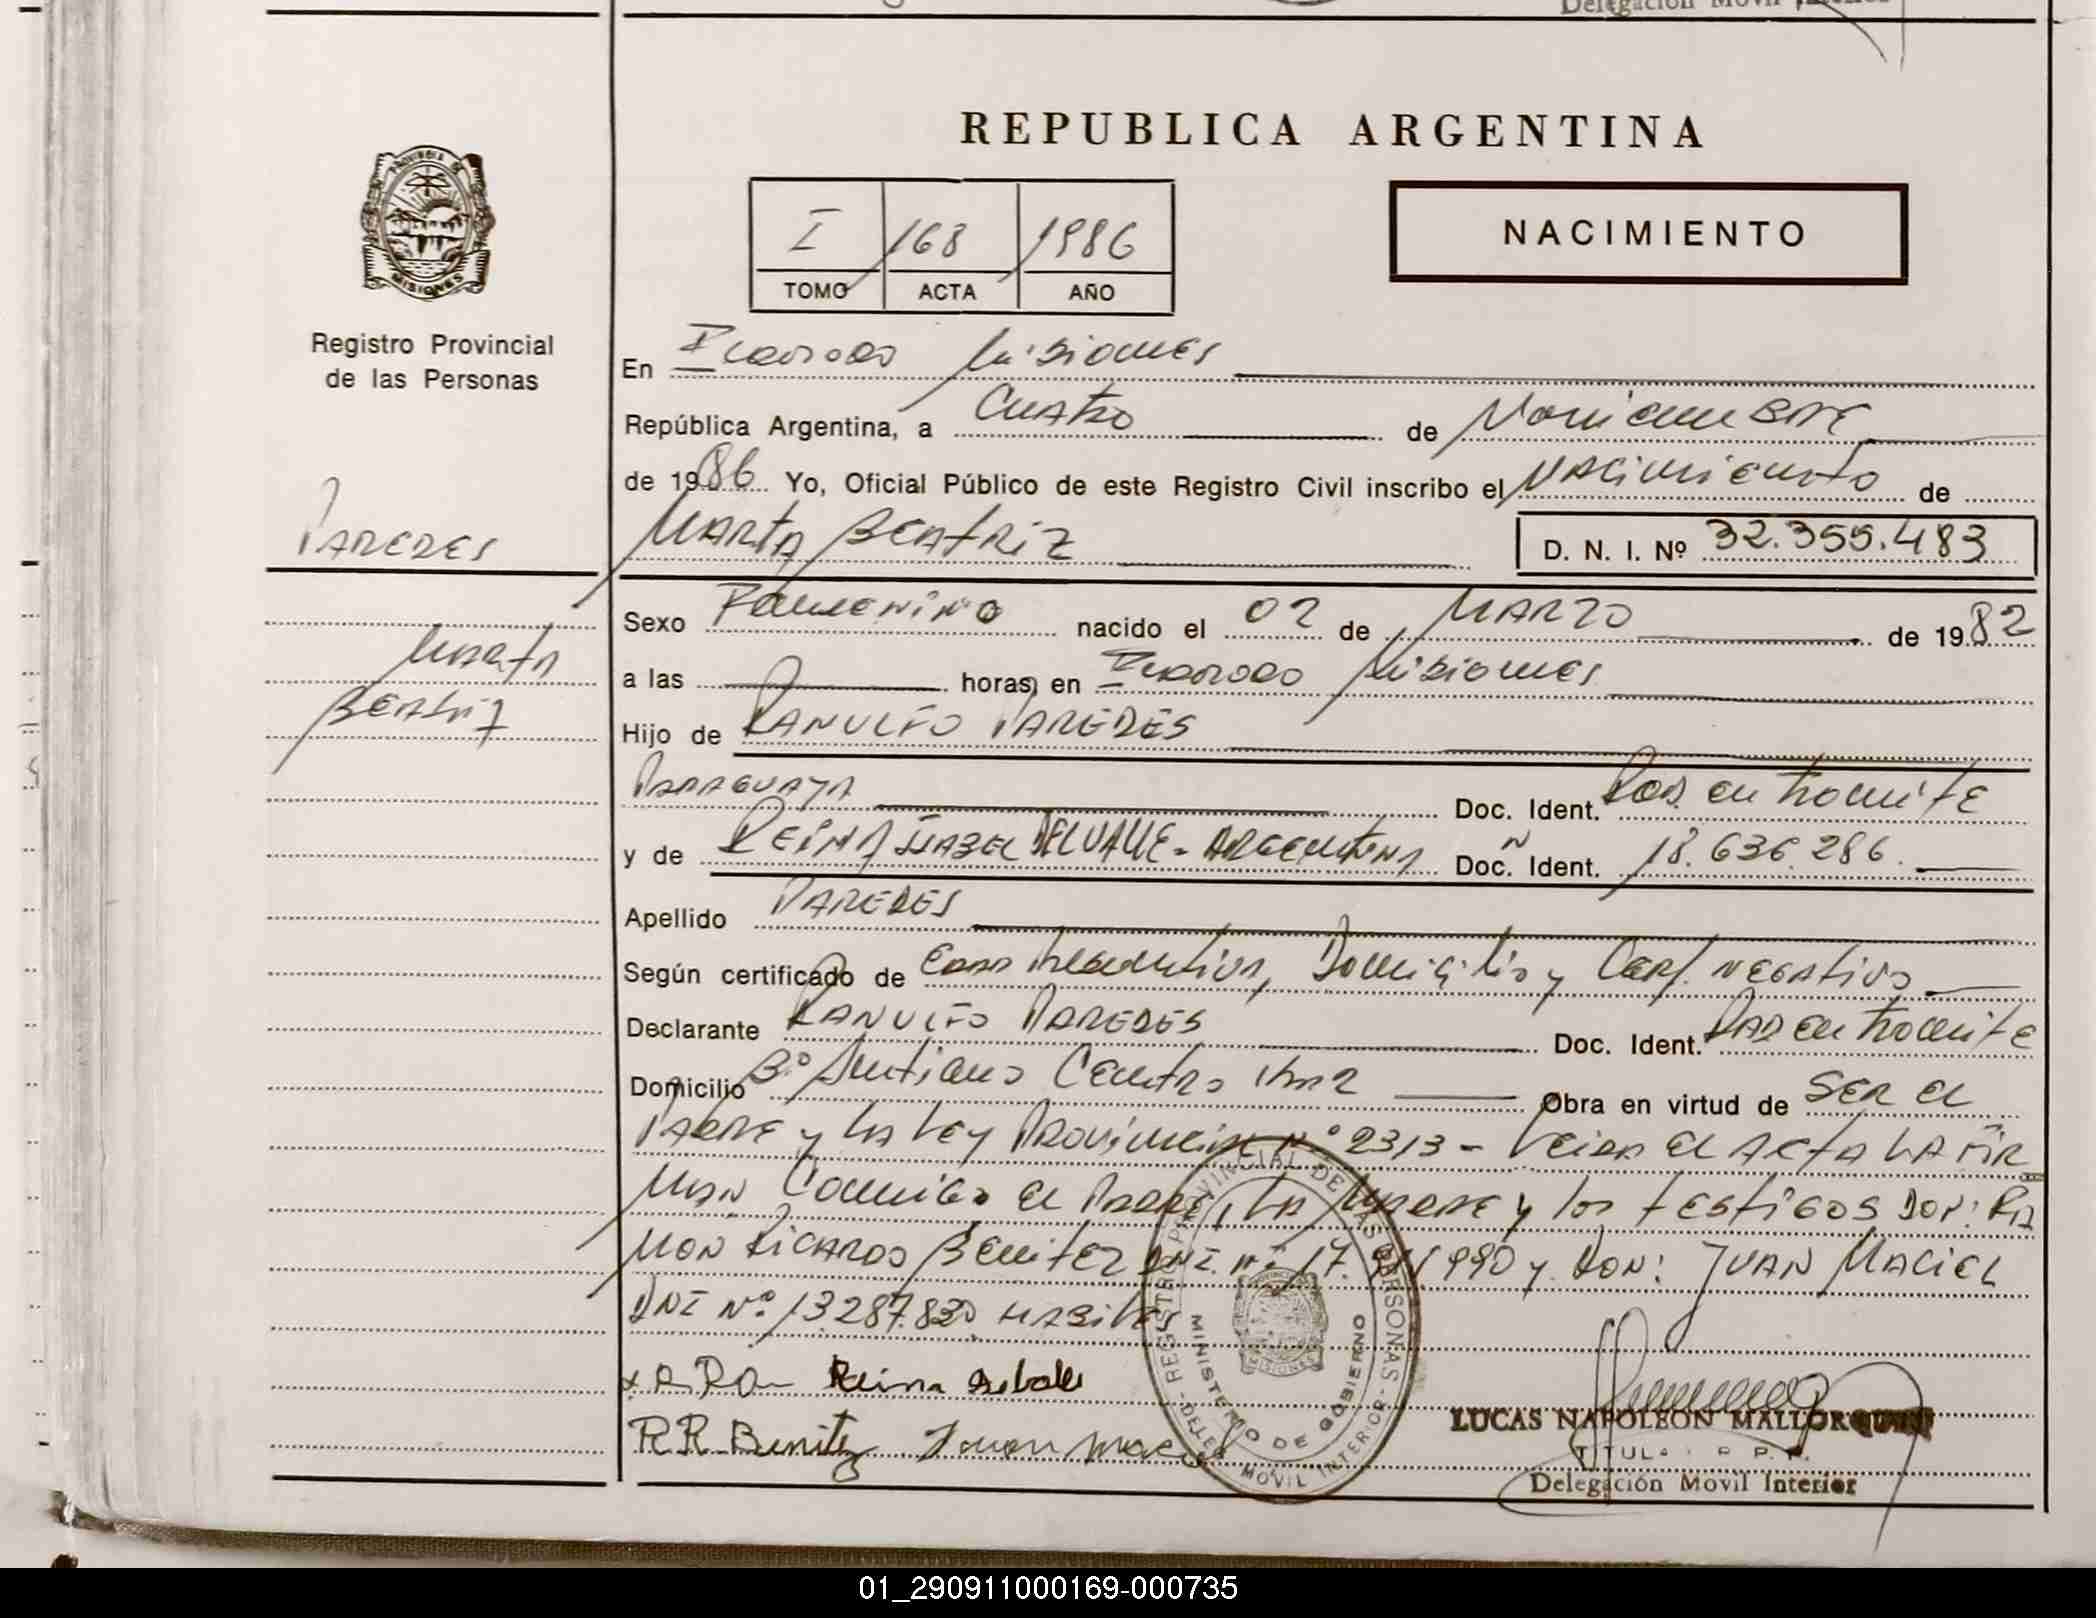 Delegación Movil Interior
REPUBLICA ARGENTINA
PROVINCIA DE
MISIONES
I 168 1986
TOMO ACTA AÑO
NACIMIENTO
Registro Provincial
de las Personas
En Eldorado Misiones
República Argentina, a Cuatro de Noviembre
de 1986 Yo, Oficial Público de este Registro Civil inscribo el Nacimiento de
PAREDES
Marta Beatriz
D. N. I. Nº 32.355.483
Marta
Beatriz
Sexo Femenino nacido el 02 de Marzo de 1982
a las horas, en Eldorado Misiones
Hijo de Ranulfo Paredes
Paraguaya Doc. Ident. Rad. en tramite
y de Reina Isabel Delvalle - Argentina Doc. Ident. Nº 18.636.286.
Apellido Paredes
Según certificado de Domicilio y Cert. negativo
Declarante Ranulfo Paredes Doc. Ident. Rad en tramite
Domicilio Bº Centro Obra en virtud de ser el
Padre y la Ley Provincial Nº 2313 - Leida el acta la fir
man Conmigo el Padre, la Madre y los testigos Don: Ra
mon Ricardo Benitez DNI. Nº 17. 990 y Don: Juan Maciel
DNI Nº 13.287.830 Habiles
Reina
R R Benitez Juan
REGISTRO PROVINCIAL DE LAS PERSONAS
MINISTERIO DE GOBIERNO
DELEG. MOVIL INTERIOR
LUCAS NAPOLEON MALLORQUIN
TITULAR R. P. P.
Delegación Movil Interior
01_290911000169-000735